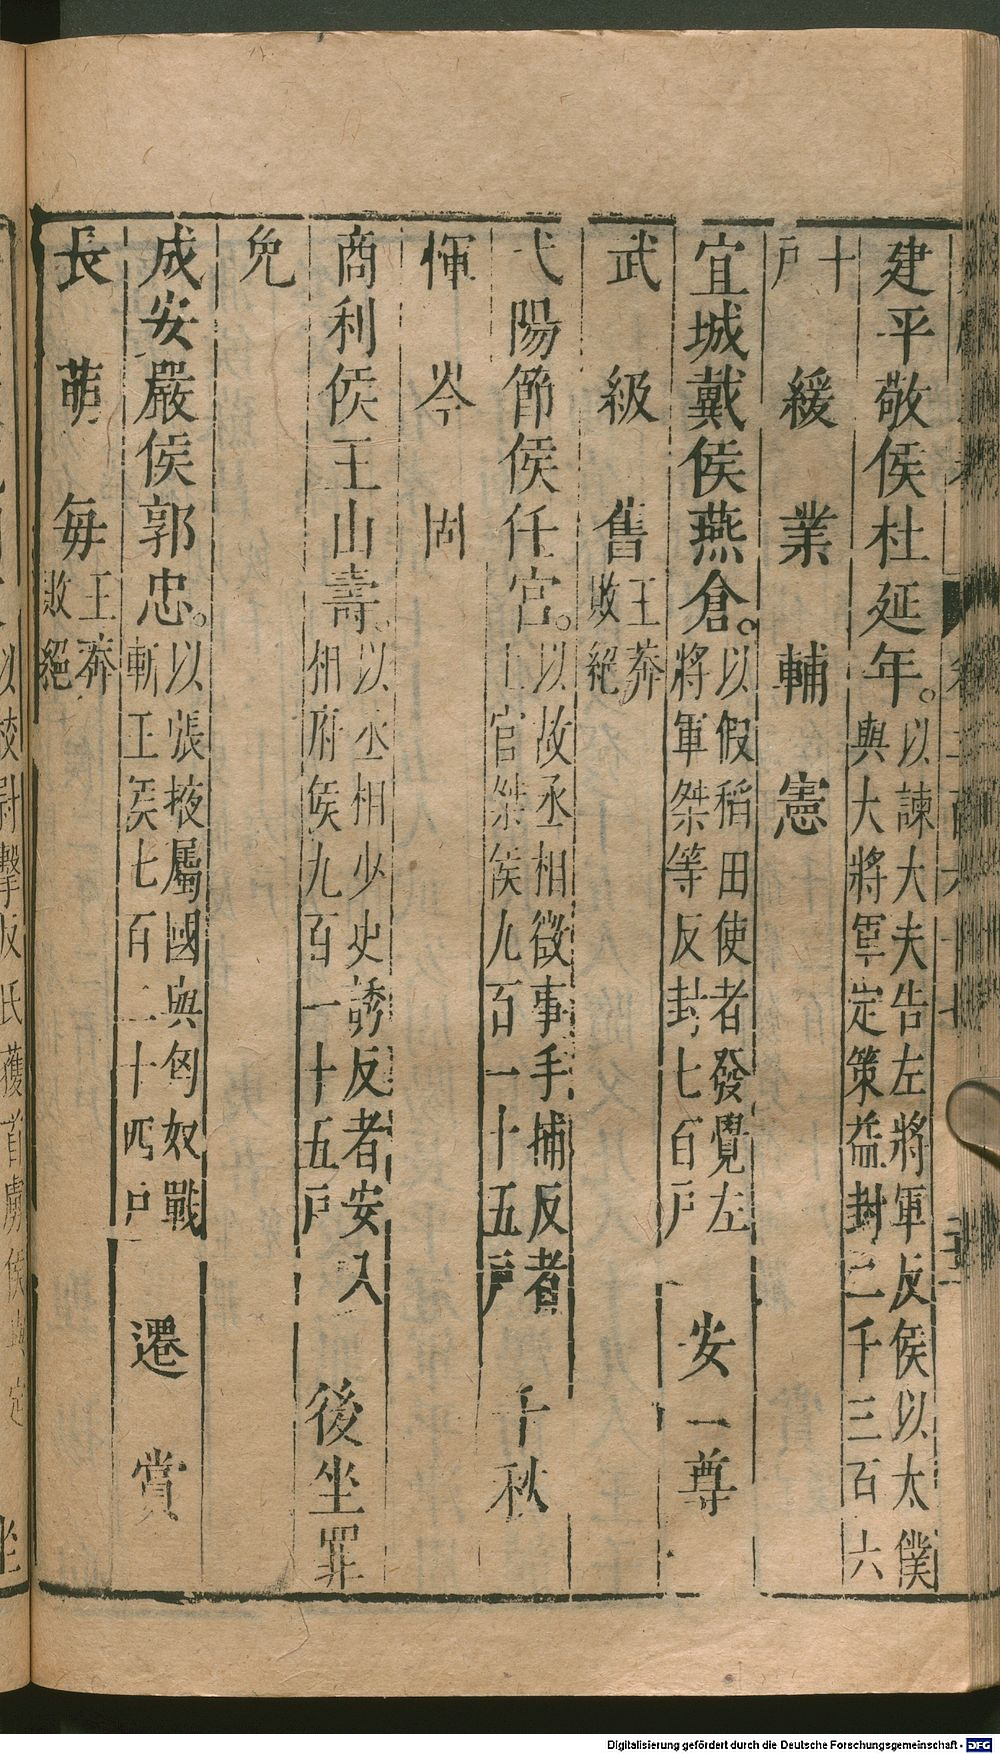 建平敬侯杜延年。以諫大夫告左將軍反侯以太僕與大將軍定策益封二千三百六
十戶 緩 業 輔 憲
宜城戴侯燕倉。以假稻田使者發覺左將軍桀等反封七百戶 安 一 尊
武 級 舊 王莽敗絕
弋陽節侯任宮。以故丞相徵事手捕反者上官桀侯九百一十五戶 千秋
惲 岑 固
商利侯王山壽。以丞相少史誘反者安入相府侯九百一十五戶 後坐罪
免
成安嚴侯郭忠。以張掖屬國與匈奴戰斬王侯七百二十四戶 遷 賞
長 萌 每 王莽敗絕
以校尉擊反氐獲首虜侯 定
坐
Digitalisierung gefördert durch die Deutsche Forschungsgemeinschaft - DFG